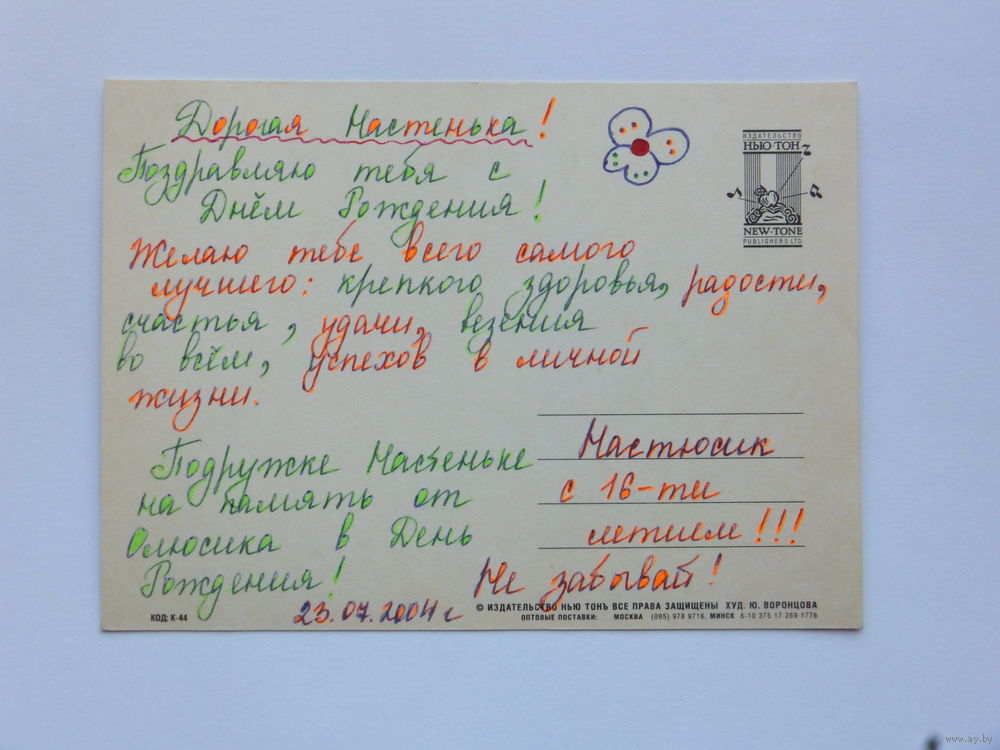 Дорогая Настенька!
Поздравляю тебя с
Днём Рождения!
Желаю тебе всего самого
лучшего: крепкого здоровья, радости,
счастья, удачи, везения
во всём, успехов в личной
жизни.
Подружке Настеньке
на память от
Олюсика в День
Рождения!
23.07.2004 г
Настюсик
с 16-ти
летием!!!
Не забывай!
ИЗДАТЕЛЬСТВО
НЬЮ·ТОНЪ
NEW·TONE
PUBLISHERS LTD
КОД: К-44
© ИЗДАТЕЛЬСТВО НЬЮ ТОНЪ ВСЕ ПРАВА ЗАЩИЩЕНЫ ХУД. Ю. ВОРОНЦОВА
ОПТОВЫЕ ПОСТАВКИ: МОСКВА (095) 978 9716, МИНСК 8-10 375 17 269 1776
www.ay.by